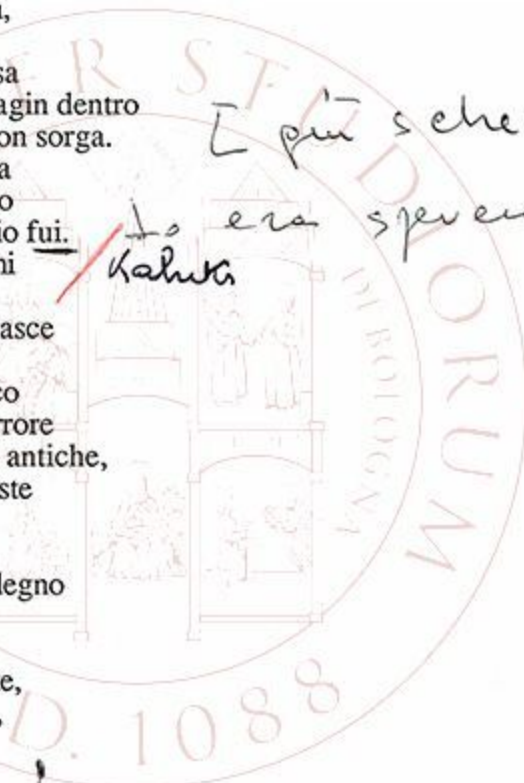 sa
agin dentro
on sorga.
a
o
io fui.
ni
asce
co
rrore
antiche,
ste
legno
e,
[ più sche
Io era
STUDIORUM
DI BOLOGNA
A.D. 1088